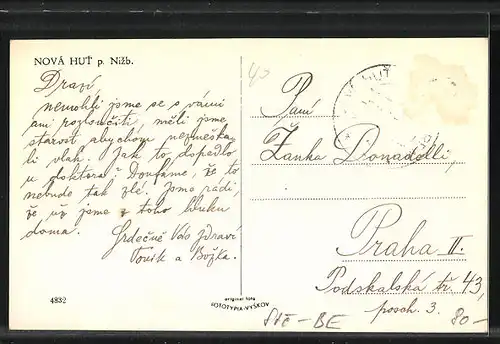 NOVÁ HUŤ p. Nižb.
40
Drazí,
nemohli jsme se s vámi
ani rozloučiti, měli jsme
starost abychom nezmeška-
li vlak. Jak to dopadlo
u doktora? Doufáme, že to
nebude tak zlé. Jsme rádi,
že už jsme z toho hluku
doma. Srdečně Vás zdraví
a Božka.
HUŤ
Paní
Žanka Donadelli,
Praha II.
Podskalská tř. 43,
posch. 3.
4832
original foto
FOTOTYPIA-VYŠKOV
BE
80-